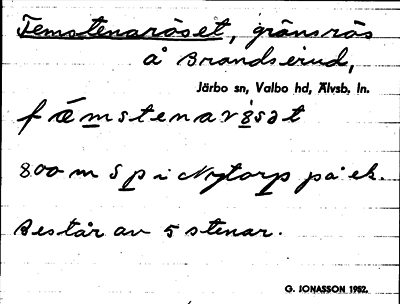 Femstenaröset, gränsrös
å Brandserud,
Järbo sn, Valbo hd, Älvsb. ln.
fæmstenarösət
800 m S p i Nytorp på ek.
Består av 5 stenar.
G. JONASSON 1982.